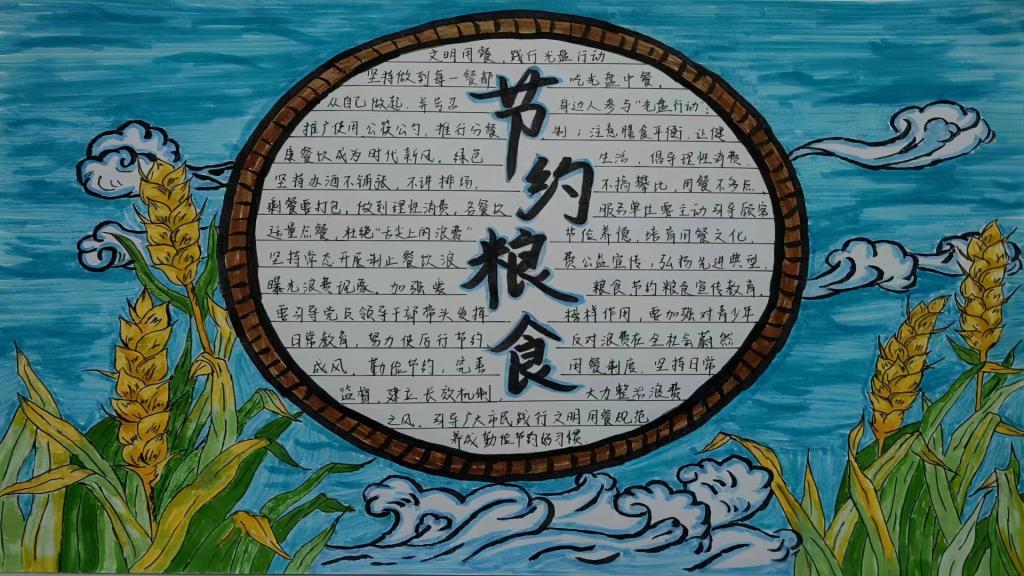 文明用餐、践行光盘行动
坚持做到每一餐都 吃光盘中餐,
从自己做起,并号召 身边人参与“光盘行动”;
推广使用公筷公勺,推行分餐 制;注意膳食平衡,让健
康餐饮成为时代新风,绿色 生活,倡导理性消费
坚持办酒不铺张,不讲排场, 不搞攀比,用餐不多点、
剩餐要打包,做到理性消费,各餐饮 服务单位要主动引导顾客
适量点餐,杜绝“舌尖上的浪费” 节俭养德,培育用餐文化,
坚持常态开展制止餐饮浪 费公益宣传,弘扬先进典型,
曝光浪费现象,加强爱 粮食节约粮食宣传教育,
要引导党员领导干部带头发挥 榜样作用,要加强对青少年
日常教育,努力使厉行节约、 反对浪费在全社会蔚然
成风,勤俭节约,完善 用餐制度,坚持日常
监督,建立长效机制, 大力整治浪费
之风,引导广大市民践行文明用餐规范
养成勤俭节约好习惯
节约粮食